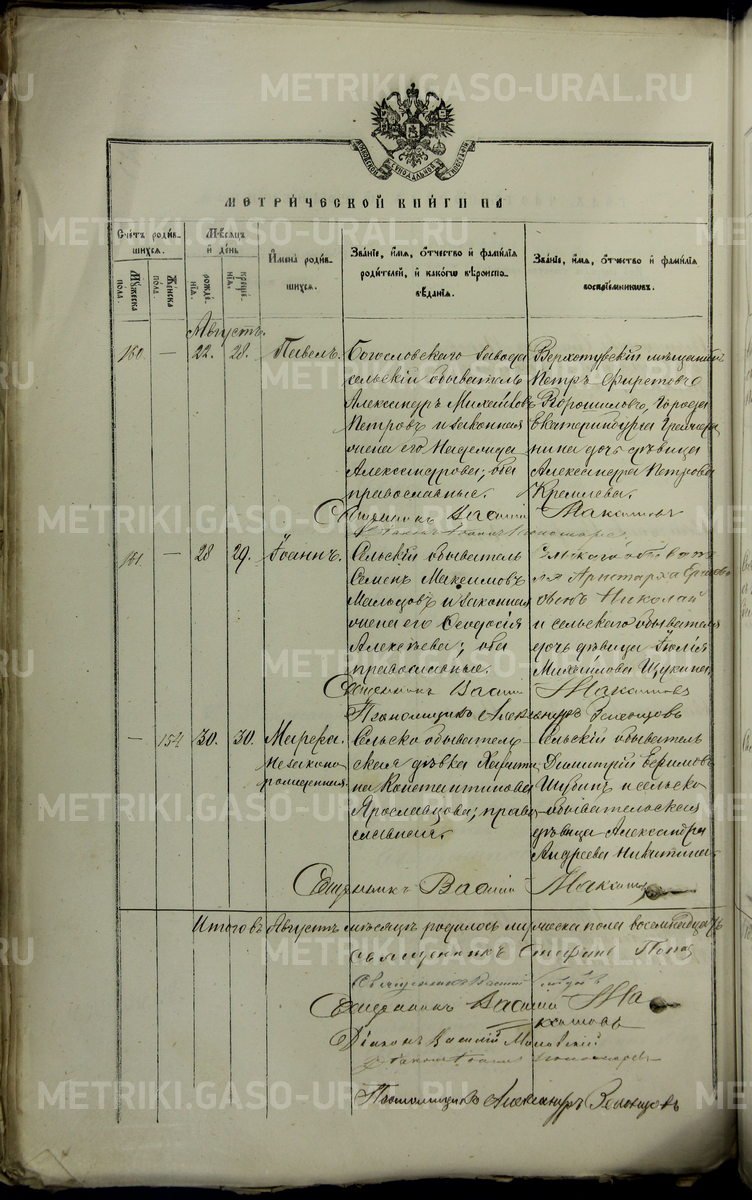 METRIKI.GASO-URAL.RU METRIKI.GASO-URAL.RU
МОСКОВСКОЙ СѴНОДАЛЬНОЙ ТИПОГРАФІИ
МЕТРИЧЕСКОЙ КНИГИ НА
Счетъ родившихся.
Мужеска пола.
Женска пола.
Мѣсяцъ и день
рожденія.
крещенія.
Имена родившихся.
Званіе, имя, отчество и фамилія родителей, и какого вѣроисповѣданія.
Званіе, имя, отчество и фамилія воспріемниковъ.
Августъ.
160. — 22. 28. Павелъ.
Богословскаго завода
сельскій обыватель
Александръ Михайловъ
Петровъ и законная
жена его Надежда
Александрова; оба
православные.
Верхотурскій мѣщанинъ
Петръ
Ворошиловъ, города
Екатеринбурга
дочь дѣвица
Александра Петрова
Кремлева.
Священникъ Василій Максимовъ
161. — 28 29. Іоаннъ.
Сельскій обыватель
Семенъ Максимовъ
Мальцовъ и законная
жена его Ѳеодосія
Алексѣева; оба
православные.
Аристарха
Николай
и сельскаго обывателя
дочь дѣвица Юлія
Михайлова Щукина.
Священникъ Василій Максимовъ
Псаломщикъ Александръ
— 154 30. 30. Марѳа.
незаконно
рожденная.
Сельско обыватель
ская дѣвка Харити
на Константинова
Ярославцова; право
славная.
Сельскій обыватель
Димитрій Ефимовъ
Шубинъ и сельско
обывательская
дѣвица Александра
Андреева Никитина.
Священникъ Василій Максимовъ
Итого въ Августѣ мѣсяцѣ родилось мужеска пола восемнадцать
Священникъ Стефанъ Поповъ
Священникъ Василій
Священникъ Василій Максимовъ
Діаконъ Василій
Діаконъ Іоаннъ Пономаревъ
Псаломщикъ Александръ